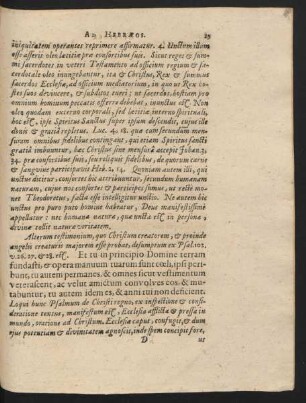 AD HEBRÆOS. 25
iniquitatem operantes reprimere affirmatur. 4. Unctum illum
esse asserit oleo lætitiæ præ consortibus suis. Sicut reges & sum-
mi sacerdotes in veteri Testamento ad officium regium & sa-
cerdotale oleo inungebantur, ita & Christus, Rex & summus
sacerdos Ecclesiæ, ad officium mediatorium, in quo ut Rex con-
ditos suos devinceret, & subditos tueri; ut sacerdos, hostiam pro
omnium hominum peccatis offerre debebat, inunctus est. Non
oleo quodam externo corporali, sed oleo lætitiæ, interno spirituali,
hoc est, ipse Spiritus Sanctus super ipsum descendit, eujus ille
donis & gratiâ repletus. Luc. 4. 18. quam cum non secundum
mensuram omnibus fidelibus contingant, qui etiam Spiritus sancti
gratiâ imbuuntur, hæc Christus sine mensurâ accepit Johan. 3,
34. præ consortibus suis, seu reliquis fidelibus, de quorum carne
& sanguine participavit Hebr. 2, 14. Quoniam autem illi, qui
unctus dicitur, consortes hic attribuuntur, secundum humanam
naturam, cujus nos consortes & participes sumus, ut rectè monet
Theodoretus, facta esse intelligitur unctio. Ne autem hic
unctus pro puro puto homine habeatur, Deus manifestissimè
appellatur: nec humana natura, quæ uncta est in persona,
divinæ rectè naturæ veritatem.
Alterum testimonium, quo Christum creatorem, & proinde
angelis creaturis majorem esse probat, desumptum ex Psal. 102,
v. 26. 27, & 28. est. Et tu in principio Domine terram
fundasti, & opera manuum tuarum sunt cœli, ipsi peri-
bunt, tu autem permanes, & omnes sicut vestimentum
veterascent, ac velut amictum convolves eos, & mu-
tabuntur, tu autem idem es, & anni tui non deficient.
Loqui hunc Psalmum de Christi regno, ex inspectione & consi-
deratione contextus, manifestum est. Ecclesia afflicta & pressa in
mundo, oratione ad Christum, Ecclesiæ caput, confugit, & dum
ejus potentiam & divinitatem agnoscit, inde spem concipit fore,
D ut